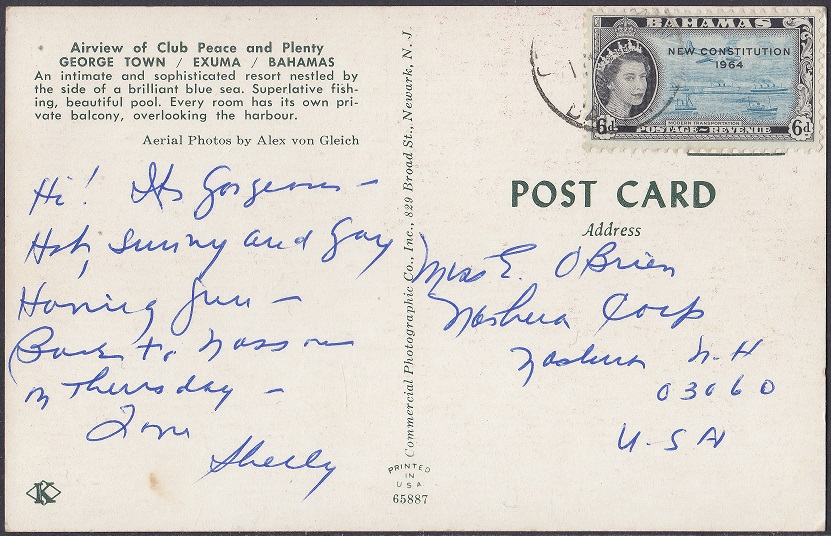 Airview of Club Peace and Plenty
GEORGE TOWN / EXUMA / BAHAMAS
An intimate and sophisticated resort nestled by
the side of a brilliant blue sea. Superlative fish-
ing, beautiful pool. Every room has its own pri-
vate balcony, overlooking the harbour.
Aerial Photos by Alex von Gleich
Hi! Its Gorgeous -
Hot, sunny and Gay
Having fun -
Back to Nassau
on Thursday -
Love
Shelly
K
Commercial Photographic Co., Inc., 829 Broad St., Newark, N. J.
PRINTED
IN
U.S.A.
65887
BAHAMAS
NEW CONSTITUTION
1964
MODERN TRANSPORTATION
6d
POSTAGE~REVENUE
6d
POST CARD
Address
Miss E. O'Brien
Nashua Corp
Nashua N-H
03060
U-SA